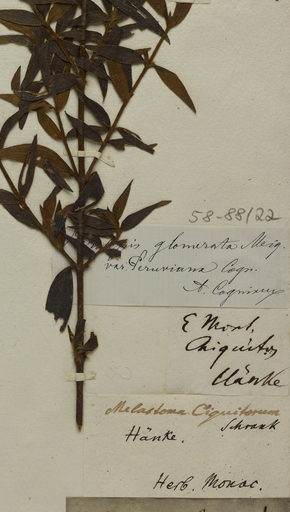 58-88/22
is glomerata Meiq.
var. Peruviana Cogn.
A. Cogniaux
E Mont.
Chiquitos
Hänke
Melastoma Ciquitorum
Schrank
Hänke.
Herb. Monac.